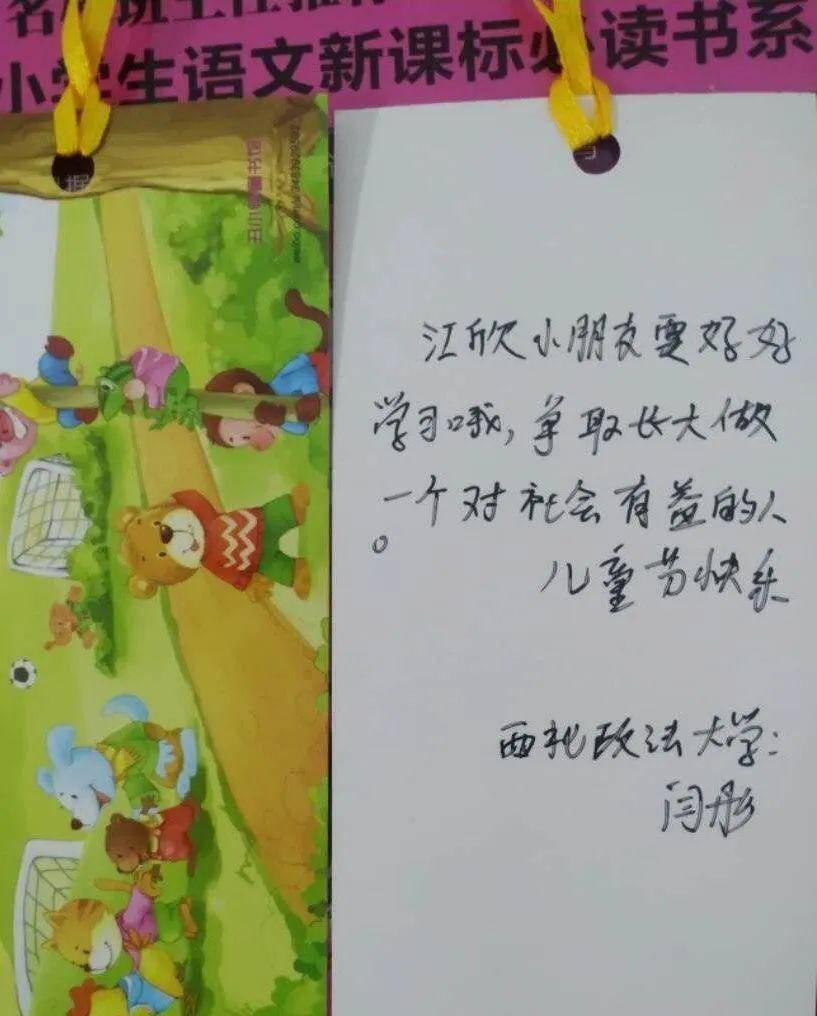 小学生语文新课标必读书系
江欣小朋友要好好
学习哦，争取长大做
一个对社会有益的人
。
儿童节快乐
西北政法大学：
闫彤